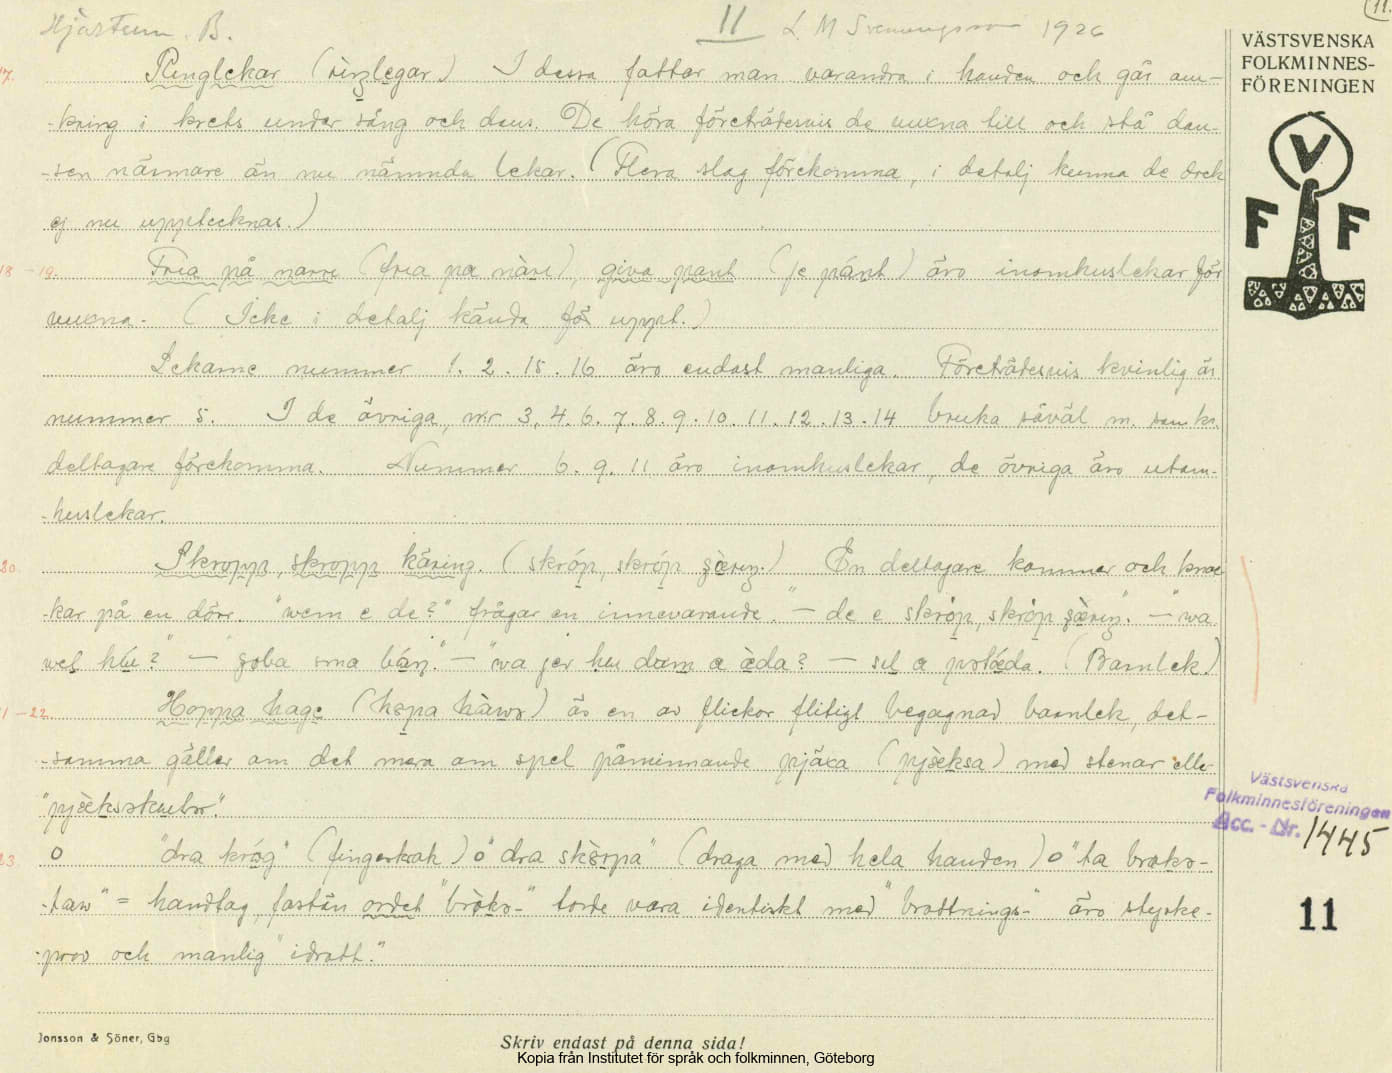 Hjärtum. B. 11 L M Svenungsson 1926
11.
VÄSTSVENSKA
FOLKMINNES-
FÖRENINGEN
V
F F
17. Ringlekar I dessa fattar man varandra i handen och går om-
-kring i krets under sång och dans. De höra företrädesvis de vuxna till och stå dan-
-sen närmare än nu nämnda lekar. (Flera slag förekomma, i detalj kunna de dock
ej nu upptecknas.)
18 - 19. Fria på narre (fria pa nàre), giva pant (je pánt) äro inomhuslekar för
vuxna. (Icke i detalj kända för uppt.)
Lekarne nummer 1. 2. 15. 16 äro endast manliga. Företrädesvis kvinlig är
nummer 5. I de övriga, nr 3. 4. 6. 7. 8. 9. 10. 11. 12. 13. 14 bruka såväl m. som kv.
deltagare förekomma. Nummer 6. 9. 11 äro inomhuslekar, de övriga äro utom-
-huslekar.
20. Skropp, skropp käring. (skróp, skróp En deltagare kommer och knac-
-kar på en dörr. "wem e de?" frågar en innevarande. "— de e skróp, skróp — "wa
hu?" — sma — "wa jer hu dom a àda? — a (Barnlek)
21 - 22. Hoppa hage är en av flickor flitigt begagnad barnlek, det-
-samma gäller om det mera om spel påminnande pjäxa med stenar eller

23. o "dra króg" (fingerkrok) o "dra (draga med hela handen) o "ta
= handtag, fastän ordet torde vara identiskt med "brottnings-" äro styrke-
-prov och manlig "idrott."
Västsvenska
Folkminnesföreningen
Acc. - Nr. 1445
11
Jonsson & Söner, Gbg
Skriv endast på denna sida!
Kopia från Institutet för språk och folkminnen, Göteborg